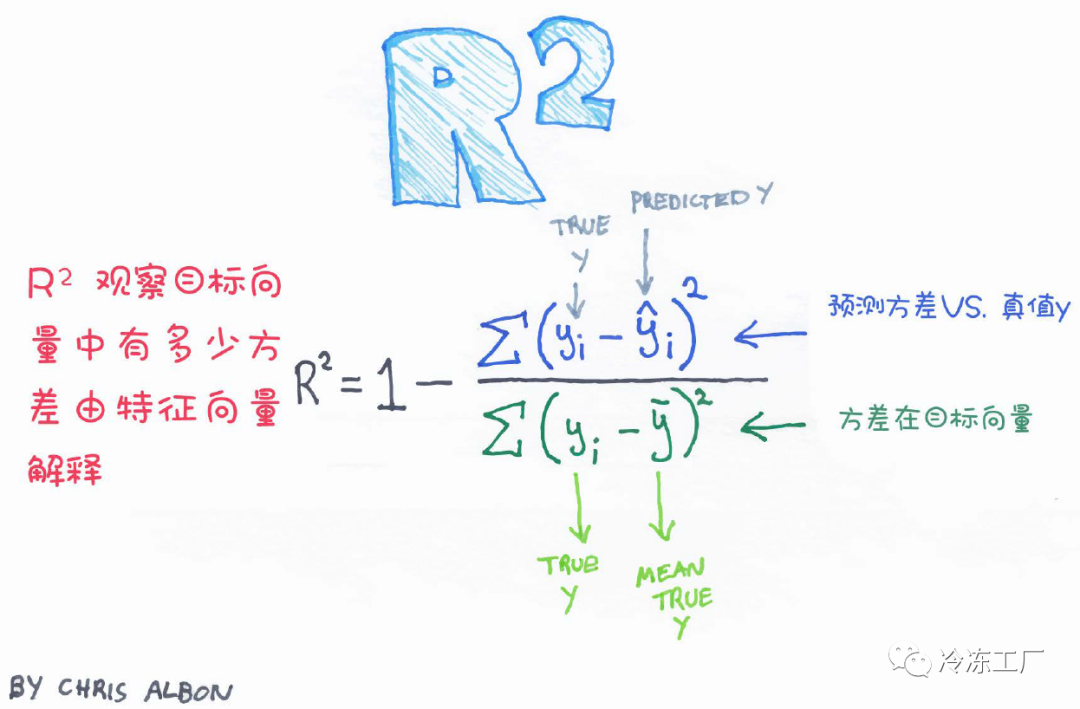 R²
TRUE
y
PREDICTED y
R² 观察目标向
量中有多少方
差由特征向量
解释
R² = 1 − Σ(yᵢ − ŷᵢ)² / Σ(yᵢ − ȳ)²
预测方差VS. 真值y
方差在目标向量
TRUE
y
MEAN
TRUE
y
BY CHRIS ALBON
冷冻工厂